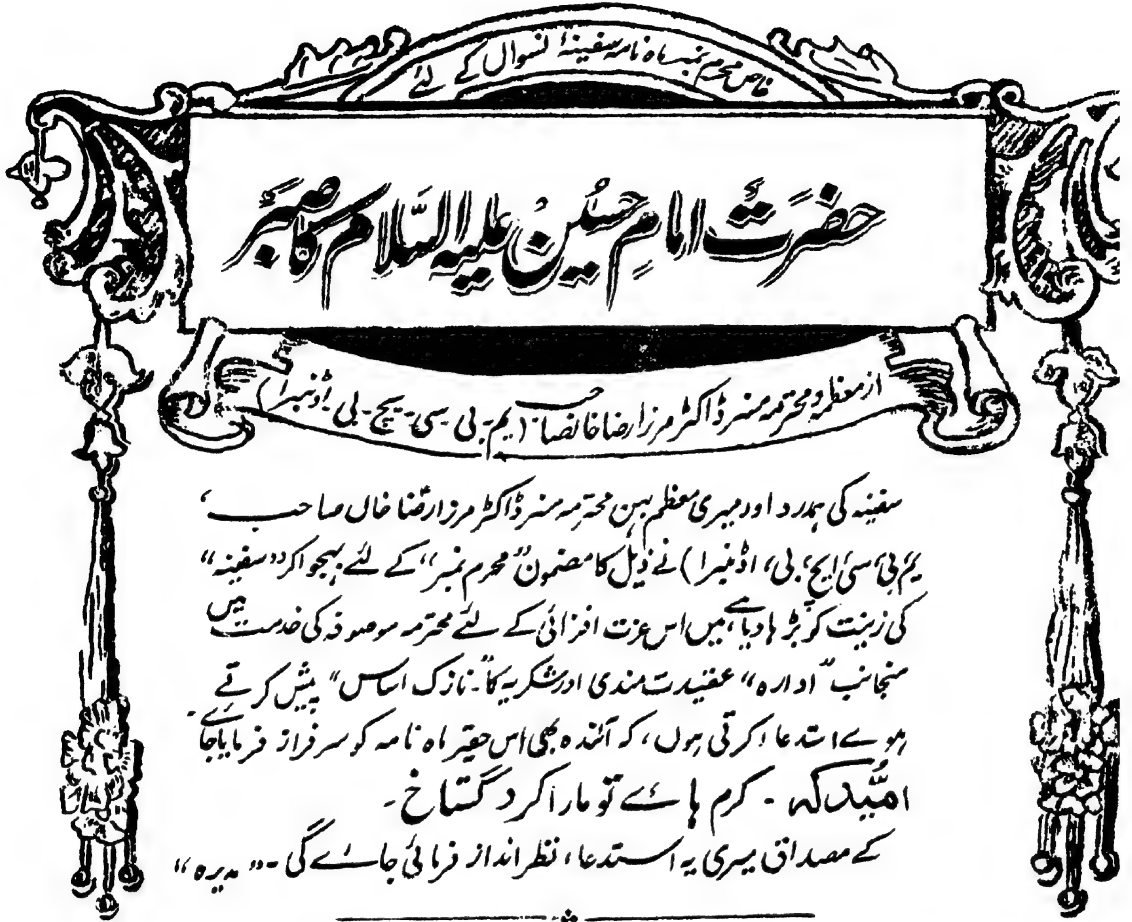 خاص محرم نمبر ماہ نامہ سفینۂ نسواں کے لئے
حضرت امام حسین علیہ السلام کا صبر
از معظمہ و محترمہ مسز ڈاکٹر مرزا رضا خانصاحب (یم۔ بی۔ سی۔ یچ۔ بی۔ اڈنبرا)
سفینہ کی ہمدرد اور میری معظم بہن محترمہ مسز ڈاکٹر مرزا رضا خاں صاحب،
یم بی، سی ایچ، بی، اڈنبرا) نے ذیل کا مضمون "محرم نمبر" کے لئے بھجوا کر "سفینہ"
کی زینت کو بڑہا دیا ہے، میں اس عزت افزائی کے لئے محترمہ موصوفہ کی خدمت میں
منجانب "ادارہ" عقیدت مندی اور شکریہ کا "نازک اساس" پیش کرتے
ہوے استدعا، کرتی ہوں، کہ آئندہ بھی اس حقیر ماہ نامہ کو سرفراز فرمایا جاے۔
امُید کہ ۔ کرم ہاے تو مارا کرد گستاخ ۔
کے مصداق میری یہ استدعا، نظر انداز فرمائی جاے گی ۔ "مدیرہ"